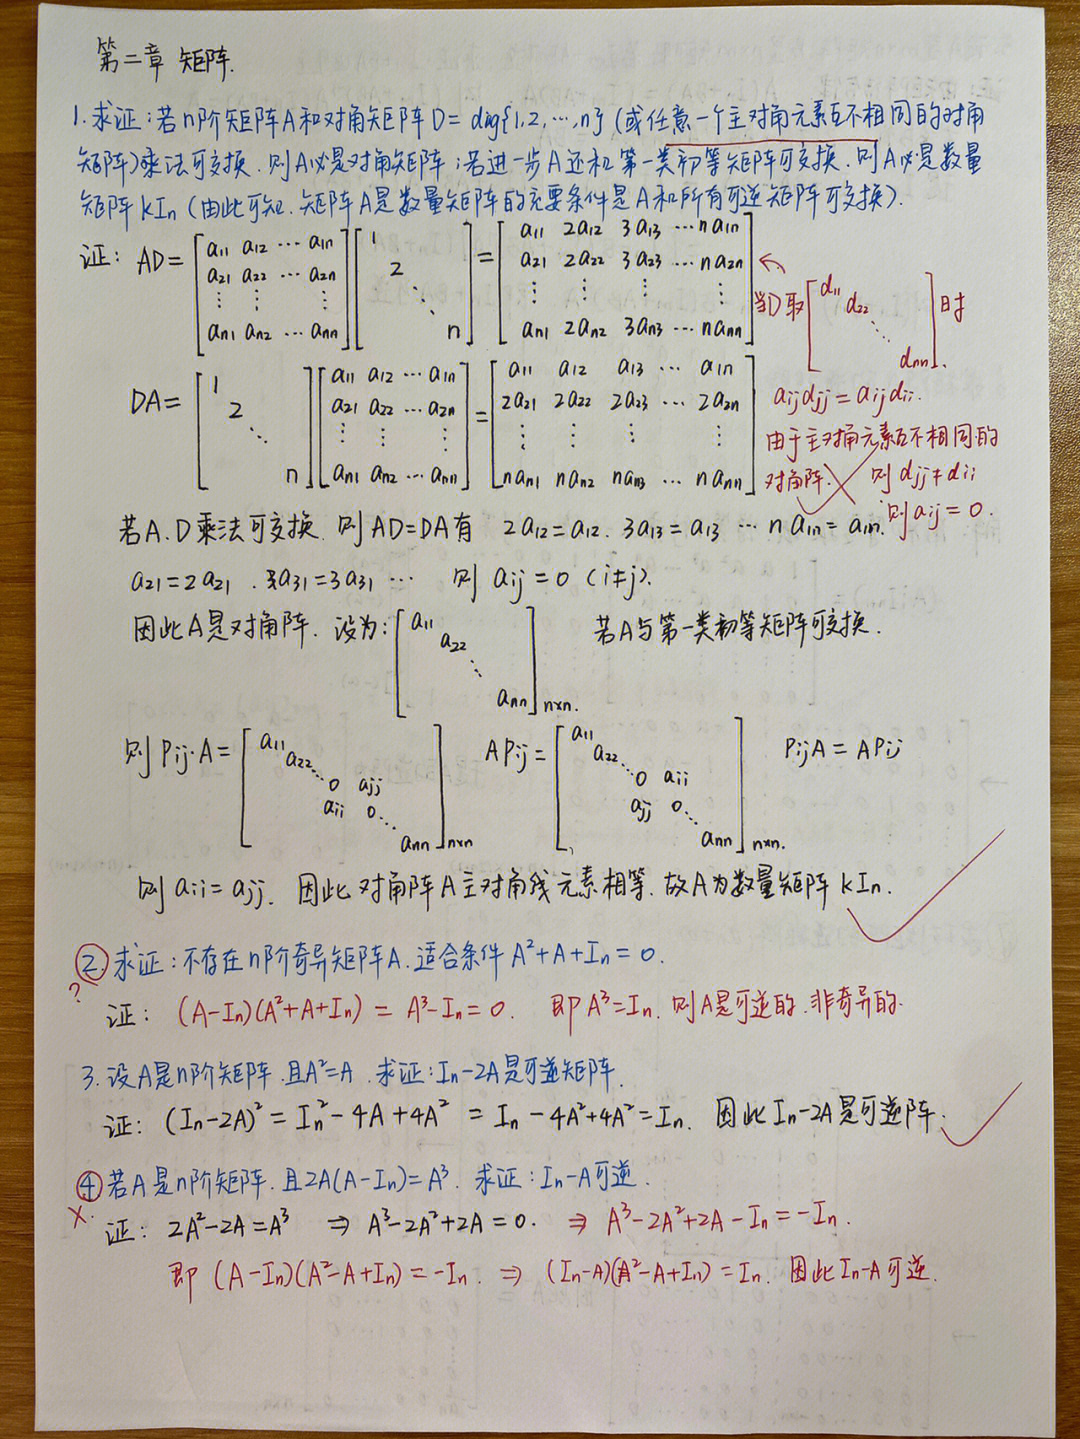 第二章 矩阵.
1. 求证：若n阶矩阵A和对角矩阵D= diag{1,2,…,n}（或任意一个主对角元素互不相同的对角
矩阵）乘法可交换．则A必是对角矩阵；若进一步A还和第一类初等矩阵可交换．则A必是数量
矩阵 kIn（由此可知．矩阵A是数量矩阵的充要条件是A和所有可逆矩阵可交换）.
证: AD= [a11 a12 … a1n
a21 a22 … a2n
⋮ ⋮ ⋮
an1 an2 … ann] [1
2
⋱
n] = [a11 2a12 3a13 … na1n
a21 2a22 3a23 … na2n
⋮ ⋮ ⋮ ⋮
an1 2an2 3an3 … nann]
当D取 [d11
d22
⋱
dnn] 时.
DA= [1
2
⋱
n] [a11 a12 … a1n
a21 a22 … a2n
⋮ ⋮ ⋮
an1 an2 … ann] = [a11 a12 a13 … a1n
2a21 2a22 2a23 … 2a2n
⋮ ⋮ ⋮ ⋮
nan1 nan2 nan3 … nann]
aijdjj = aijdii.
由于主对角元素互不相同的
对角阵. 则 djj≠dii
则 aij = 0.
若A.D乘法可交换. 则 AD=DA 有 2a12=a12. 3a13=a13 … na1n=a1n.
a21=2a21 . a31=3a31 … 则 aij=0 (i≠j).
因此A是对角阵. 设为: [a11
a22
⋱
ann]n×n. 若A与第一类初等矩阵可交换.
则 Pij·A= [a11
a22
⋱
0 ajj
aii 0
⋱
ann]n×n APij= [a11
a22
⋱
0 aii
ajj 0
⋱
ann]n×n. PijA = APij
则 aii= ajj. 因此对角阵A主对角线元素相等. 故A为数量矩阵 kIn.
②. 求证：不存在n阶奇异矩阵A. 适合条件 A²+A+In=0.
?
证: (A-In)(A²+A+In) = A³-In=0. 即 A³=In. 则A是可逆的.非奇异的.
3. 设A是n阶矩阵.且A²=A . 求证: In-2A是可逆矩阵.
证: (In-2A)² = In²-4A+4A² = In-4A²+4A²=In. 因此In-2A是可逆阵.
④ 若A是n阶矩阵.且2A(A-In)=A³. 求证：In-A可逆.
×.
证: 2A²-2A=A³ ⇒ A³-2A²+2A=0. ⇒ A³-2A²+2A-In=-In.
即 (A-In)(A²-A+In)=-In. ⇒ (In-A)(A²-A+In)=In. 因此In-A可逆.